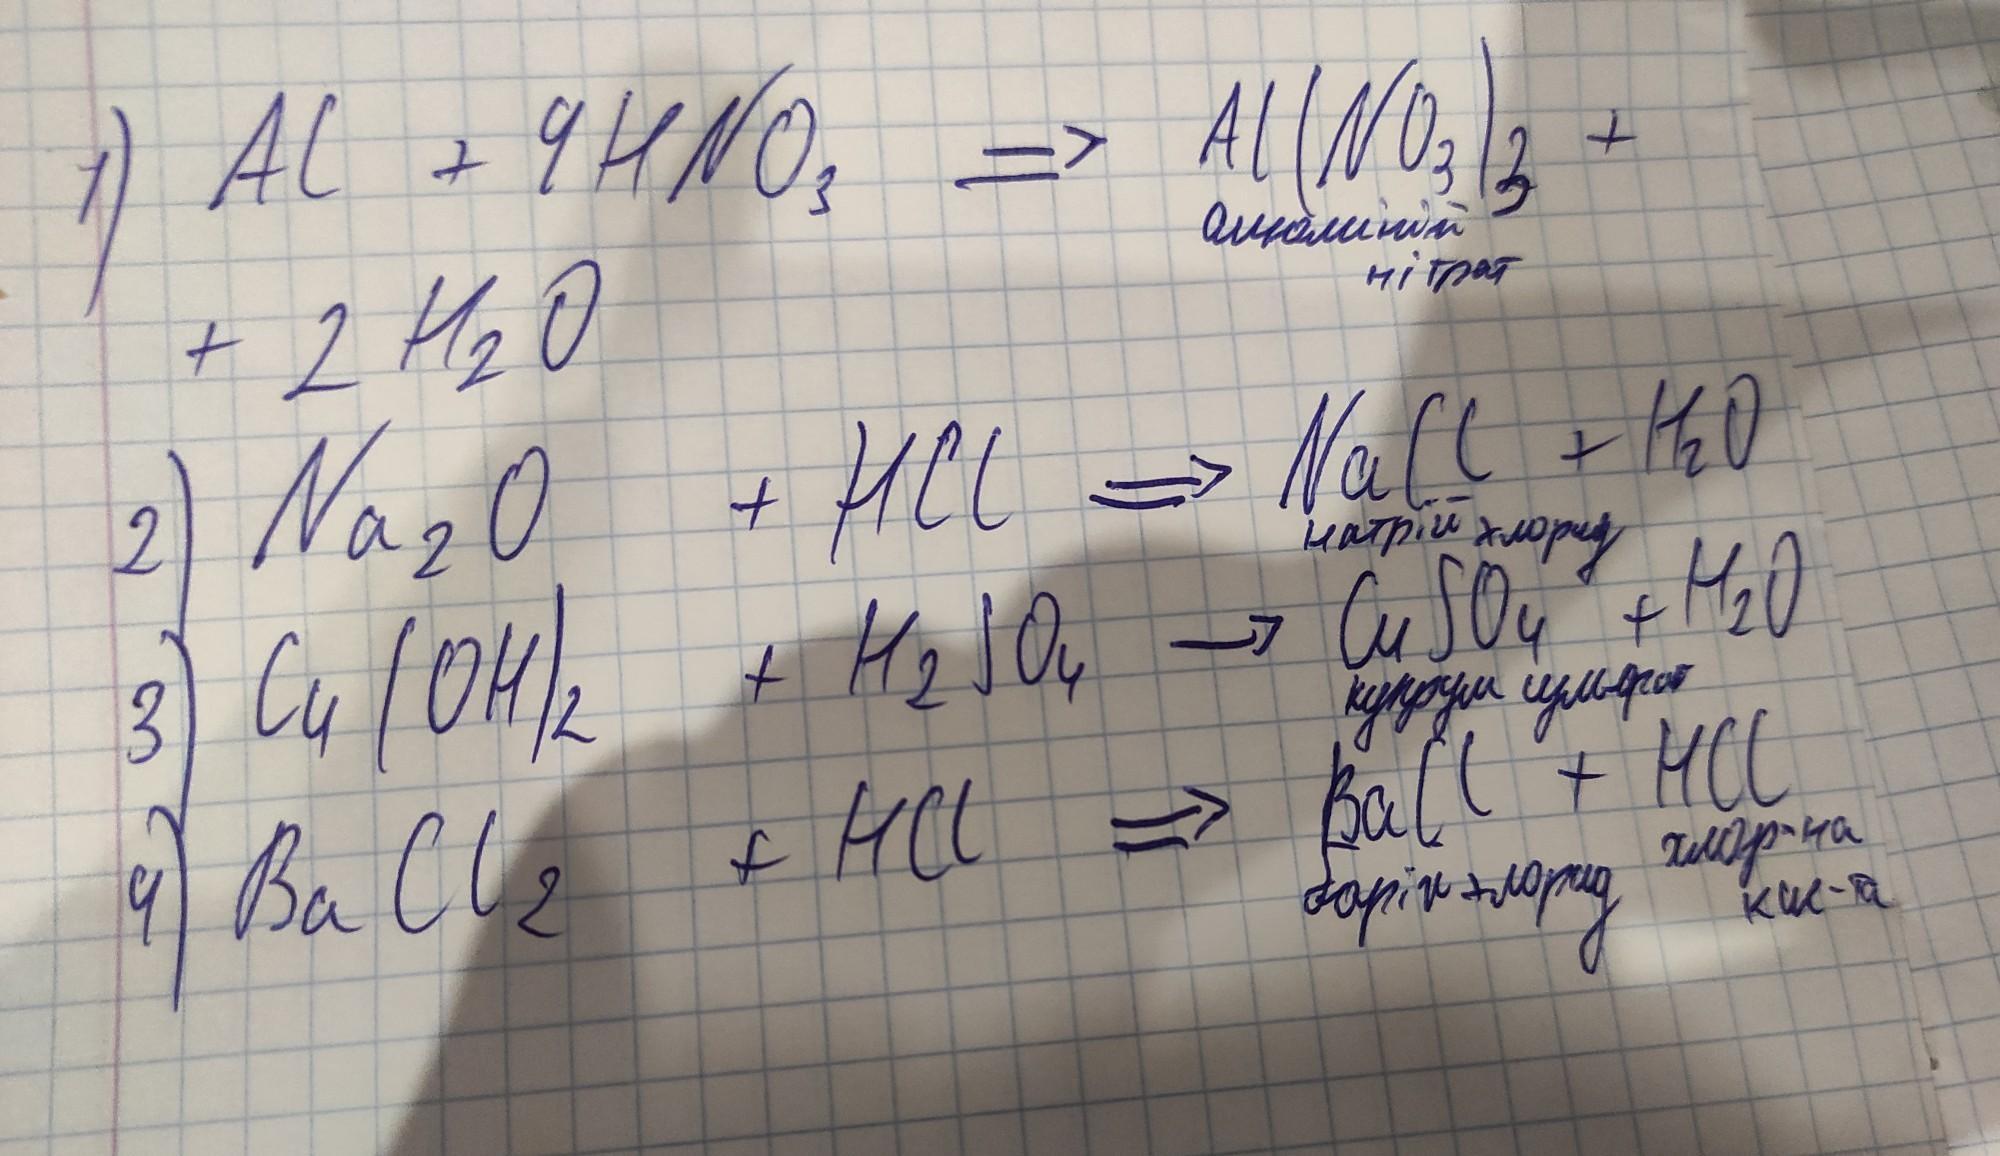 1) Al + 4HNO₃ ⇒ Al(NO₃)₃ +
алюміній
нітрат
+ 2H₂O
2) Na₂O + HCl ⇒ NaCl + H₂O
натрій хлорид
3) Cu(OH)₂ + H₂SO₄ → CuSO₄ + H₂O
купрум сульфат
4) BaCl₂ + HCl ⇒ BaCl + HCl
барій хлорид хлор-на
кис-та